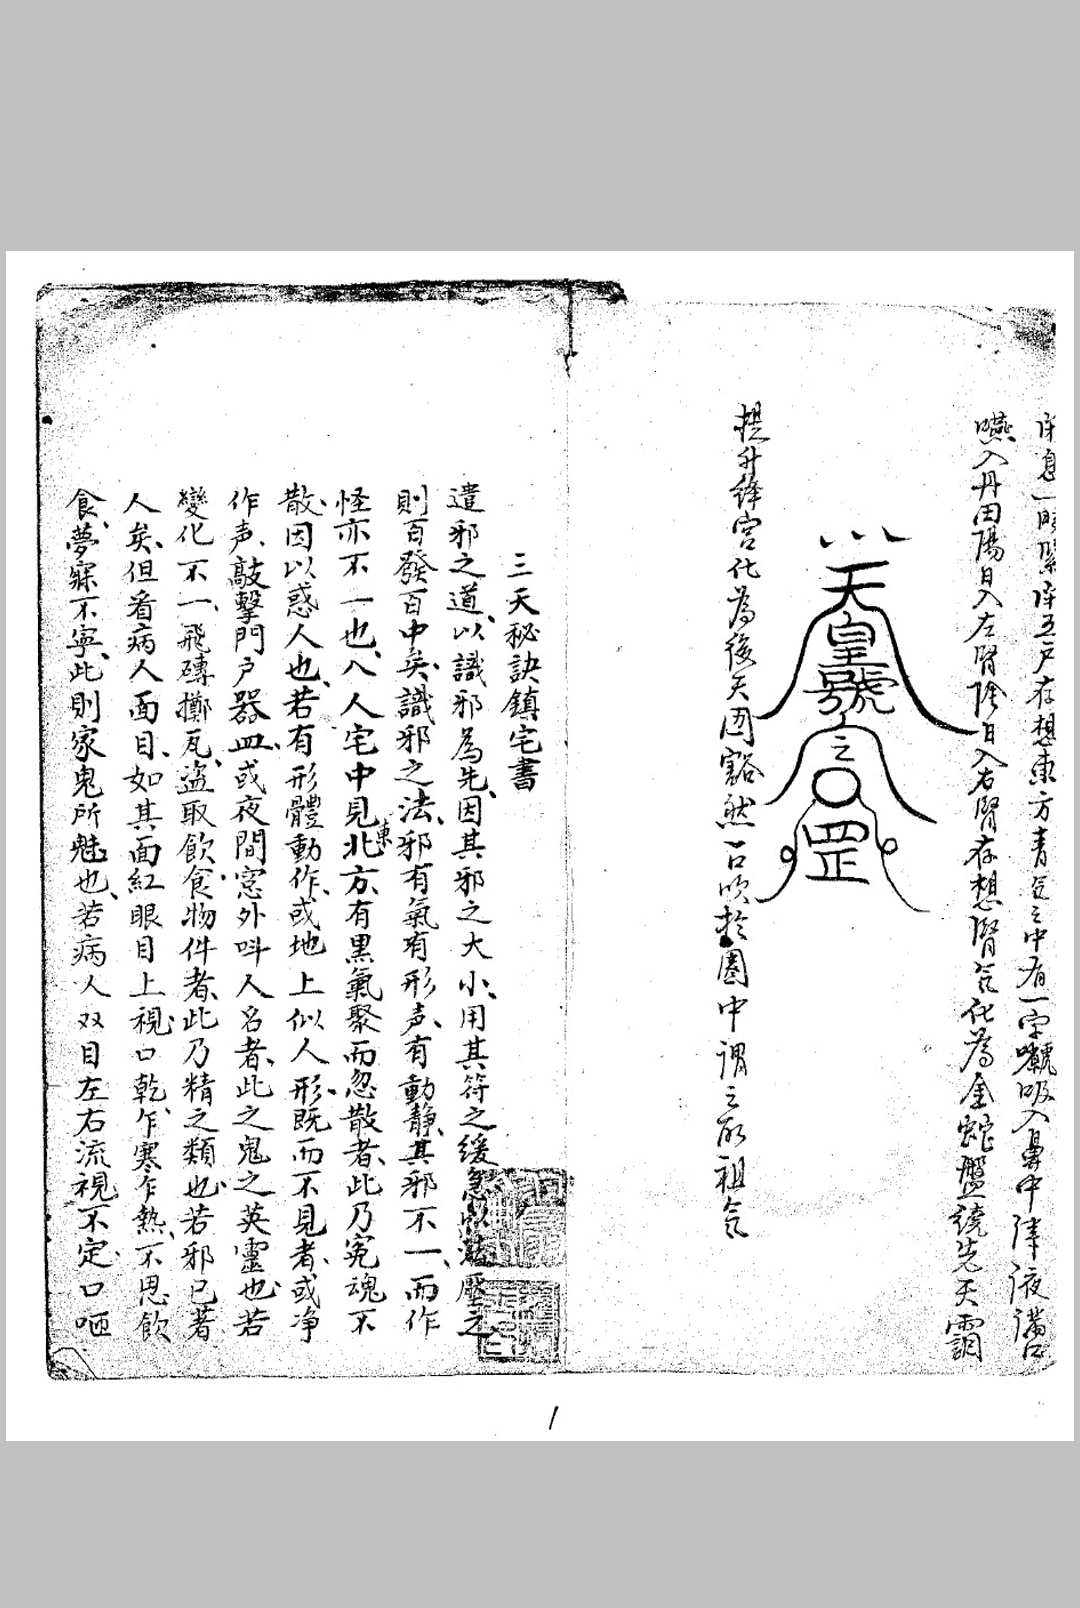 息一時緊闭五户存想東方青炁之中有一字吸入鼻中津液滿口
嚥入丹田陽日入左腎陰日入右腎存想腎炁化為金蛇盤繞先天
天皇號令之罡
提升絳宮化為後天囫豁然一口吹於圈中謂之祖炁
三天秘訣鎮宅書
遣邪之道、以識邪為先、因其邪之大小、用其符之緩急以法壓之
則百發百中矣、識邪之法、邪有氣有形声、有動静、其邪不一、而作
怪亦不一也、入人宅中見北東方有黒氣聚而忽散者、此乃寃魂不
散、因以惑人也、若有形體動作、或地上似人形、既而不見者、或净
作声、敲擊門户器皿、或夜間窓外呌人名者、此之鬼之英靈也、若
變化不一、飛磚擲瓦、盗取飲食物件者、此乃精之類也、若邪已著
人矣、但看病人面目、如其面紅眼目上視、口乾、乍寒乍熱、不思飲
食、夢寐不寧、此則家鬼所魅也、若病人双目左右流視不定、口咂
1